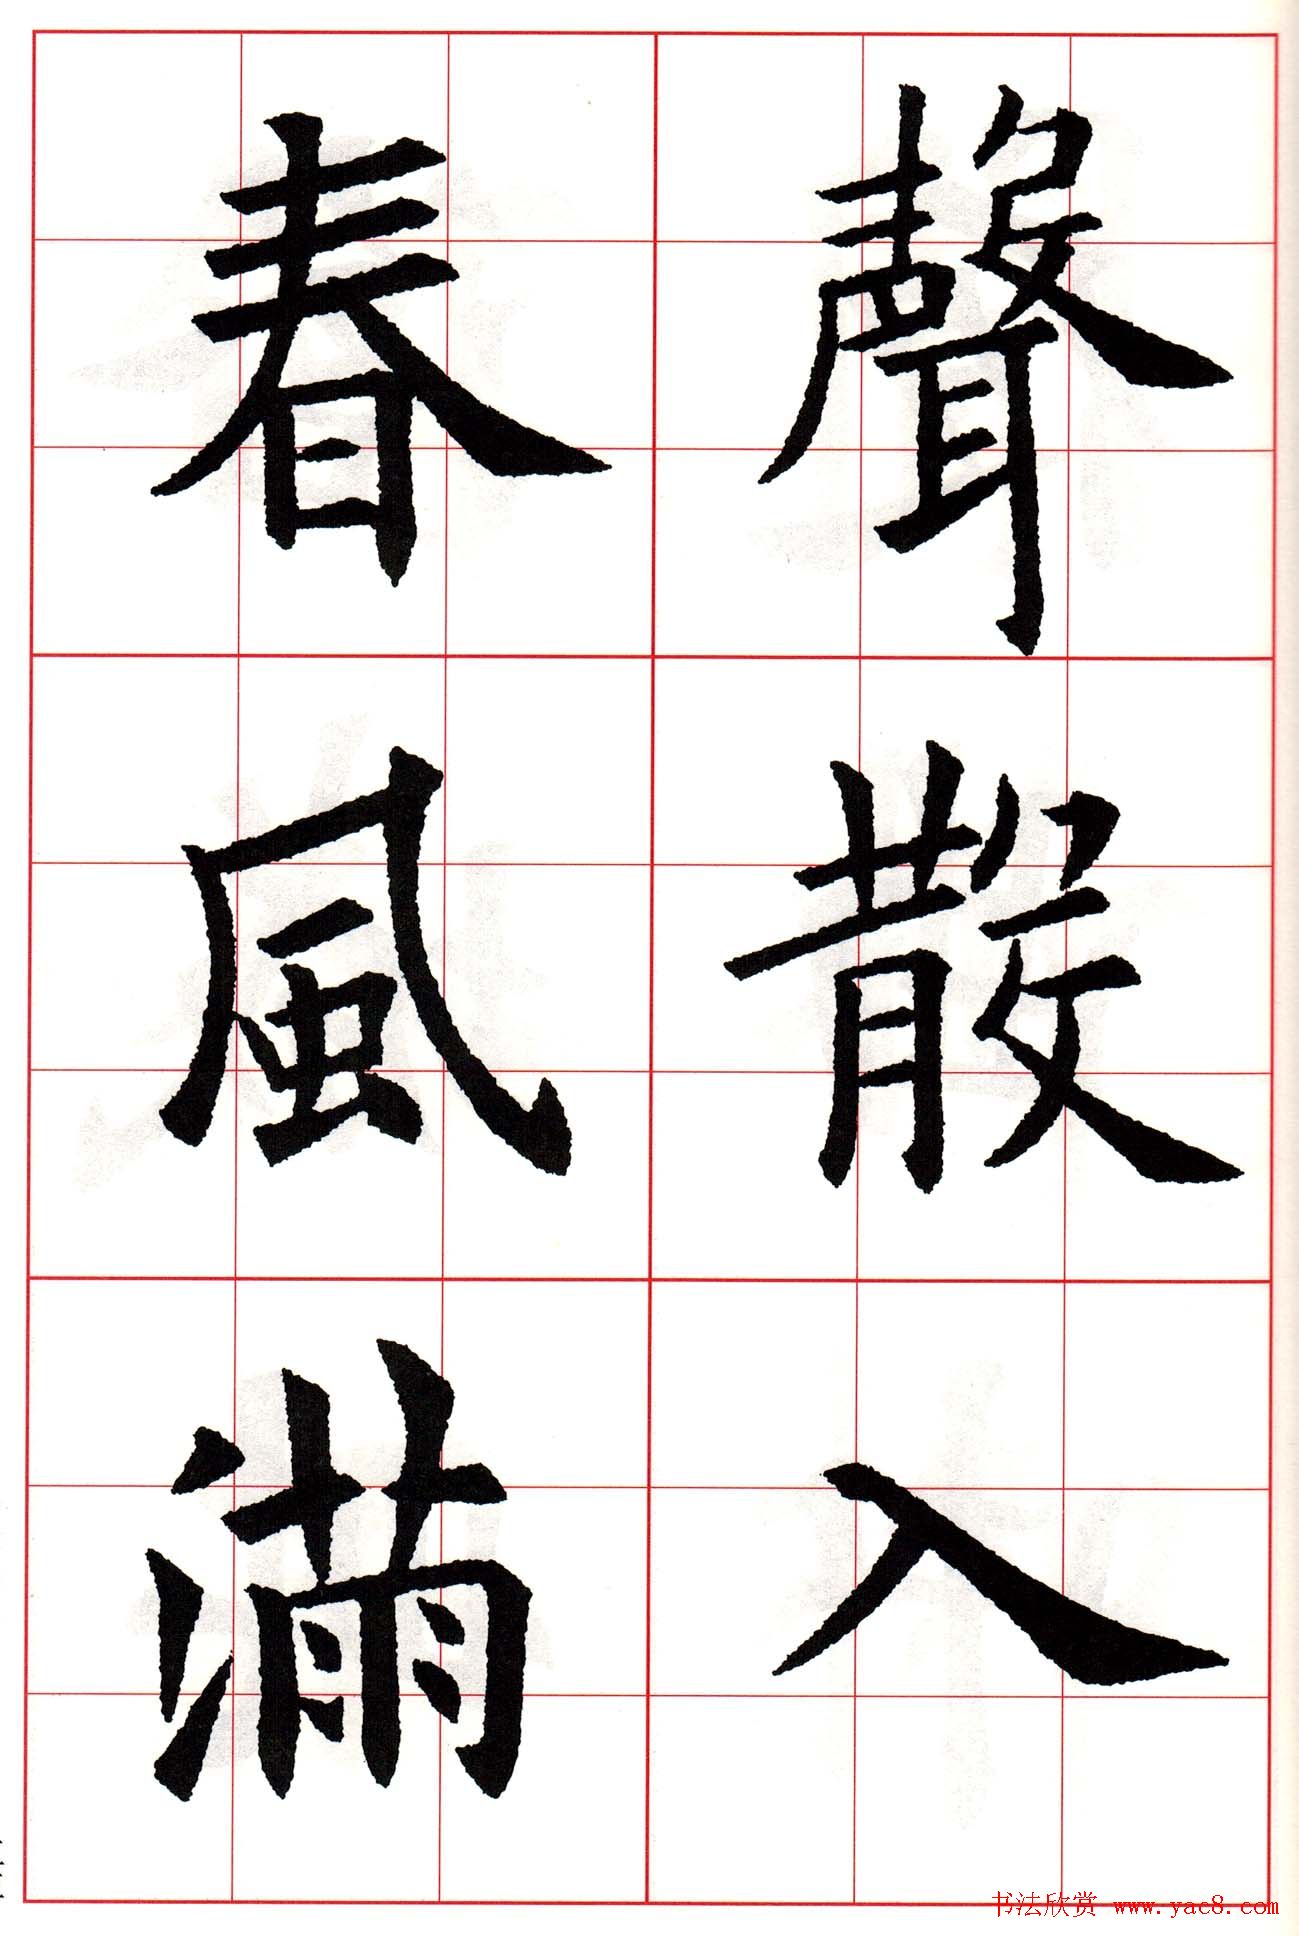 聲散入
春風滿
书法欣赏 www.yac8.com